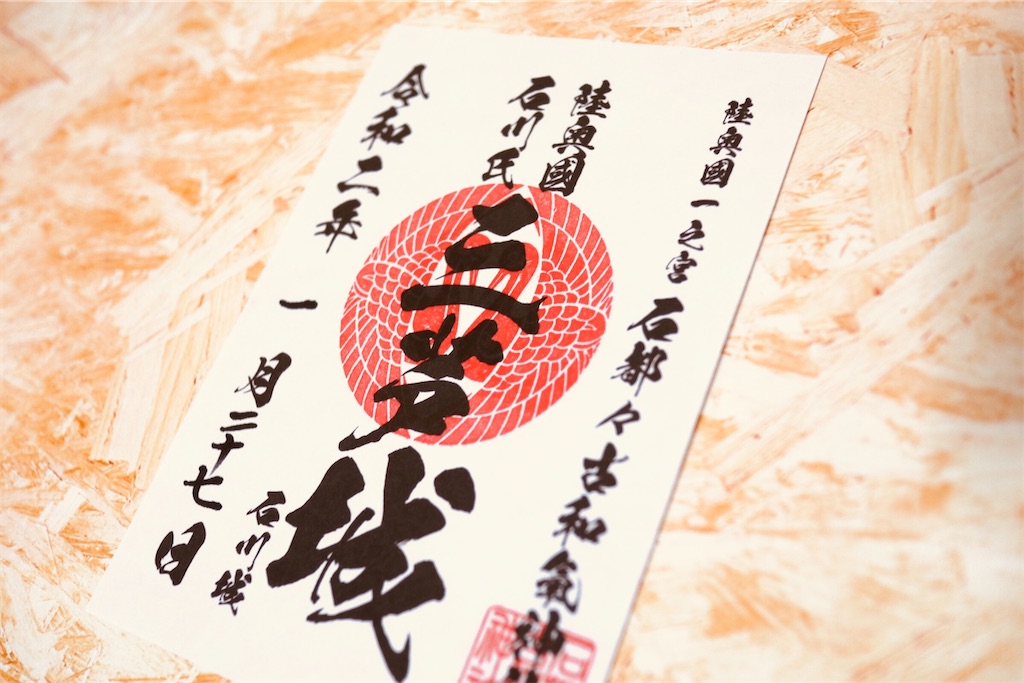 陸奥國一之宮 石都々古和氣神
陸奥國
石川氏
三芦城
石川城
令和二年一月二十七日